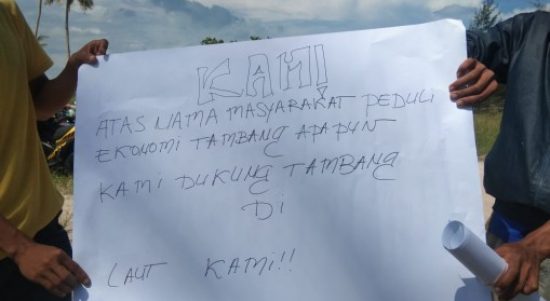 KAMI
ATAS NAMA MASYARAKAT PEDULI
EKONOMI TAMBANG APAPUN
KAMI DUKUNG TAMBANG
DI
LAUT KAMI!!